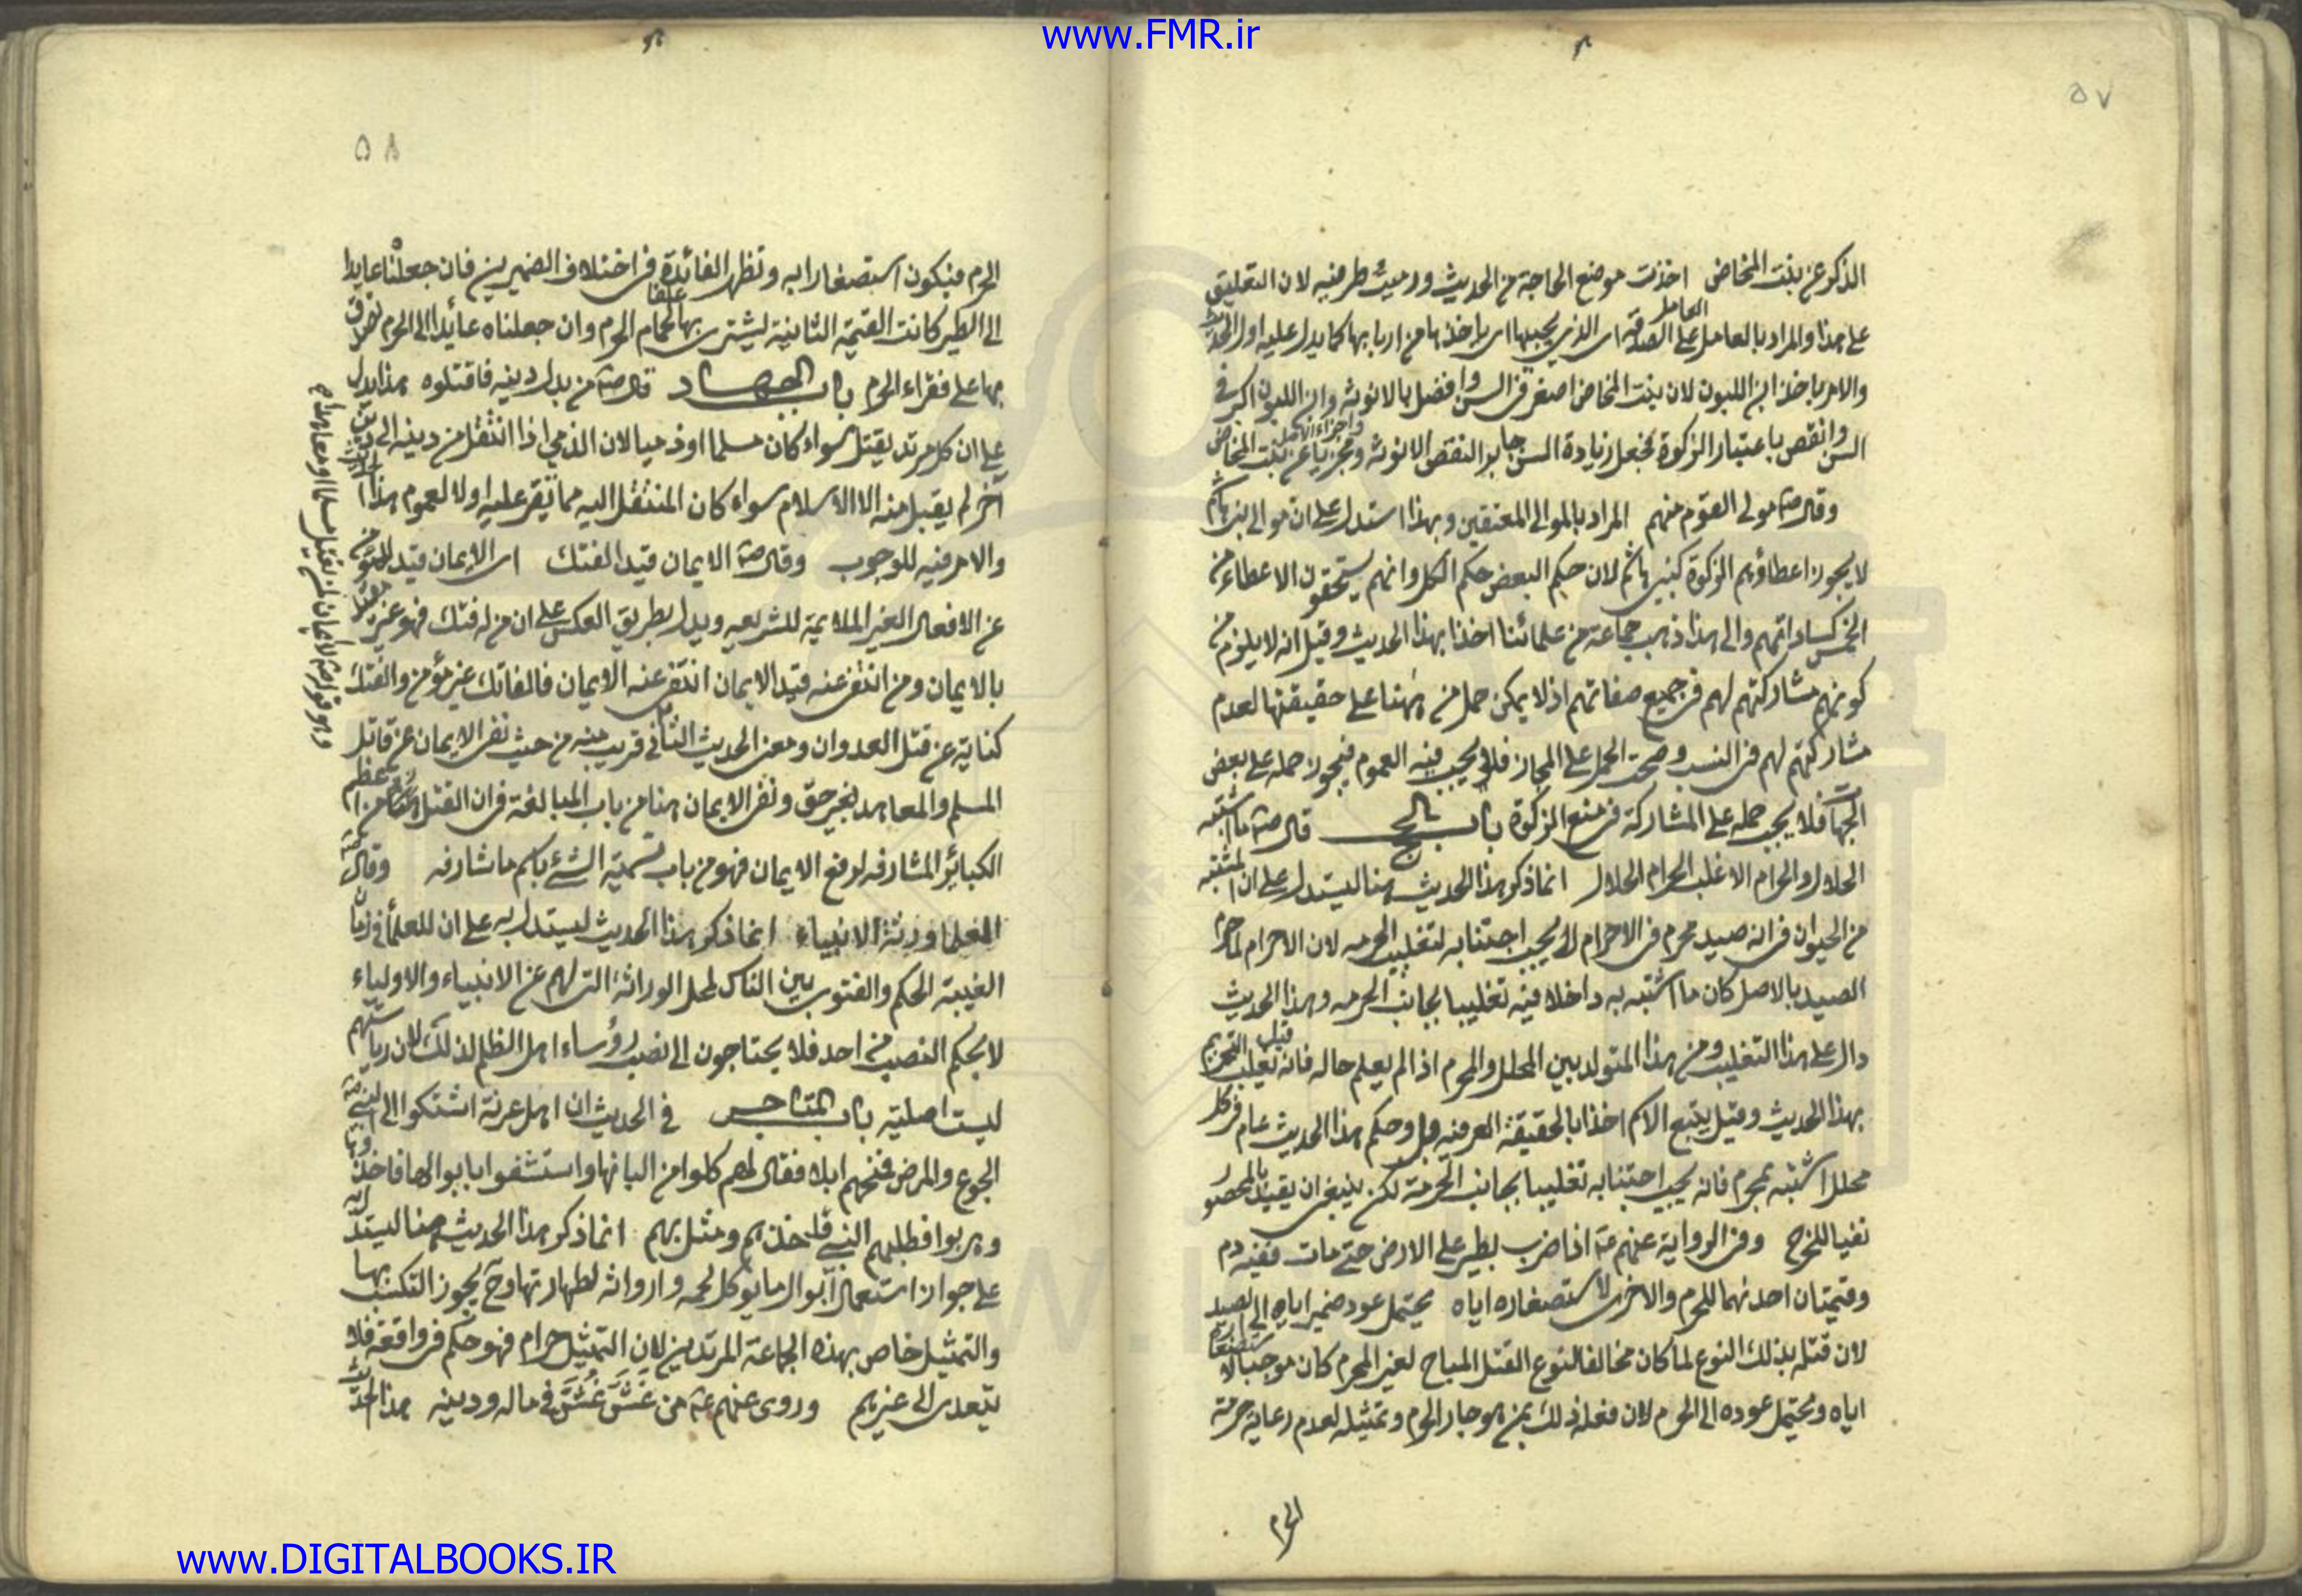 www.FMR.ir
٥٧
الذكر عن بنت المخاض اخذت موضع الحاجة من الحديث ورميت طرفيه لان التعليق
على هذا والمراد بالعامل على الصدقة اى الذى يجيبها اى ياخذها من اربابها كما يدل عليه اول الحديث
العامل
والامر باخذ ابن اللبون لان بنت المخاض اصغر فى السن وافضل بالانوثة وابن اللبون اكبر فى
السن وانقص باعتبار الذكورة فجعل زيادة السن جابر النقص الانوثة ومجزيا عن بنت المخاض
وقال صہ مولى القوم منهم المراد بالموالى المعتقين وبهذا استدل على ان موالى بنى هاشم
لا يجوز اعطاؤهم الزكوة كبنى هاشم لان حكم البعض حكم الكل وانهم يستحقون الاعطاء من
الخمس كساداتهم والى هذا ذهب جماعة من علمائنا اخذا بهذا الحديث وقيل انه لا يلزم من
كونهم مشاركتهم لهم فى جميع صفاتهم اذ لا يمكن حمل من ههنا على حقيقتها لعدم
مشاركتهم لهم فى النسب وصحت الحمل على المجاز فلا يجب فيه العموم فيجوز حمله على بعض
الجهات فلا يجب حمله على المشاركة فى منع الزكوة باب الحج قال صہ ما اشتبه
الحلال والحرام الا غلب الحرام الحلال انما ذكر هذا الحديث هنا ليستدل على ان المشتبه
من الحيوان فى انه صيد محرم فى الاحرام ام لا يجب اجتنابه لتغليب الحرمه لان الاحرام لما حرم
الصيد بالاصل كان ما اشتبه به داخلا فيه تغليبا لجانب الحرمه وهذا الحديث
دال على هذا التغليب ومن هذا المتولد بين المحلل والمحرم اذا لم يعلم حاله فانه قيل يغلب التحريم
بهذا الحديث وقيل يتبع الاسم اخذا بالحقيقة العرفيه وحكم هذا الحديث عام فى كل
محلل اشتبه بمحرم فانه يجب اجتنابه تغليبا بجانب الحرمة لكن ينبغى ان يقيد بالمحصور
نفيا للحرج وفى الرواية عنهم عہ اذا ضرب بطير على الارض حتى مات ففيه دم
وقيمتان احدىهما للحرم والاخرى لاستصغاره اياه يحتمل عود ضمير اياه الى الصيد
لان قتله بذلك النوع لما كان مخالفا لنوع القتل المباح لغير المحرم كان موجبا لاستصغاره
اياه ويحتمل عوده الى الحرم لان فعله ذلك بمن هو جار الحرم وتمثيله لعدم رعاية حرمة
الحرم
٥٨
الحرم فيكون استصغارا به وتظهر الفائدة فى اختلاف الضميرين فان جعلناه عايدا
الى الطير كانت القيمة الثانية ليشترى بها علفا لحمام الحرم وان جعلناه عائدا الى الحرم تصرف
بها على فقراء الحرم باب الجهاد قال صہ من بدل دينه فاقتلوه هذا يدل
على ان كل مرتد يقتل سواء كان مسلما او ذميا لان الذمي اذا انتقل من دينه الى دين
آخر لم يقبل منه الا الاسلام سواء كان المنتقل اليه مما يقر عليه اولا لعموم هذا
والامر فيه للوجوب وقال صہ الايمان قيد الفتك اى الايمان قيد للمؤمن
عن الافعال الغير الملايمة للشريعه ويدل بطريق العكس على ان من له فتك فهو غير مقيد
بالايمان ومن انتفى عنه قيد الايمان انتفى عنه الايمان فالفاتك غير مؤمن والفتك
كناية عن قتل العدوان ومعنى الحديث الثانى قريب منه من حيث نفى الايمان عن قاتل
المسلم والمعاهد بغير حق ونفى الايمان هنا من باب المبالغة فى ان القتل من اعظم
الكبائر المشارفه لرفع الايمان فهو من باب تسمية الشئ باسم ما شارفه وقال
العلما ورثة الانبياء انما ذكر هذا الحديث ليستدل به على ان للعلماء فى زمان
الغيبة الحكم والفتوى بين الناس لمحل الوراثة التى لهم عن الانبياء والاولياء
لا بحكم النصب من احد فلا يحتاجون الى نصب رؤساء اهل الظلم لذلك لان رياستهم
ليست اصلية باب المتاجر فى الحديث ان اهل عرنة اشتكوا الى النبى صہ
الجوع والمرض فمنحهم ابلا فقال لهم كلوا من البانها واستشفوا بابوالها فاخذوها
وهربوا فطلبهم النبى فاخذهم ومثل بهم انما ذكر هذا الحديث هنا ليستدل به
على جواز استعمال ابوال ما يوكل لحمه وارواثه لطهارتها وح يجوز التكسب بها
والتمثيل خاص بهذه الجماعة المرتدين لان التمثيل حرام فهو حكم فى واقعة فلا
يتعدى الى غيرهم وروى عنهم عہ من غَشَّ غُشَّ فى ماله ودينه هذا الحديث
www.DIGITALBOOKS.IR